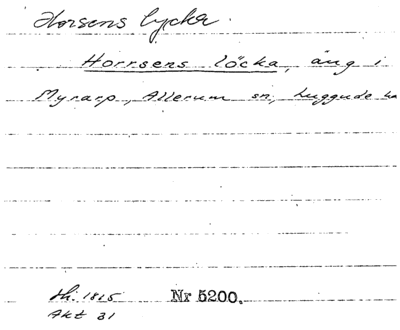 Horsens lycka.
Horrsens löcka, äng i
Myrarp, Allerum sn, Luggude ha
Sk. 1815 Nr 5200.
Akt 31